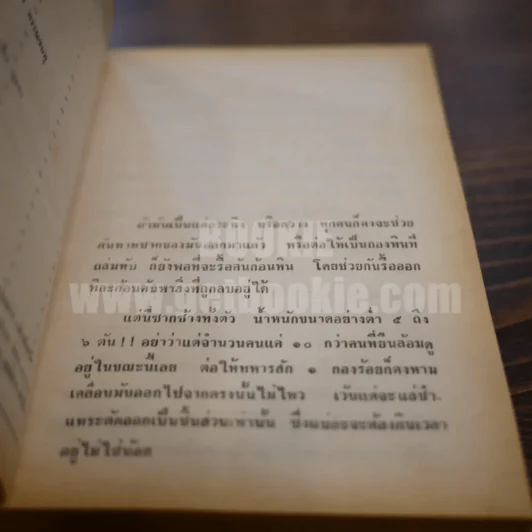 ถ้ามันเป็นแค่กระทิง หรือกวาง ทุกคนก็คงจะช่วย
ค้นหาซากของมันออกมาแล้ว หรือต่อให้เป็นกองหินที่
ถล่มทับ ก็ยังพอที่จะรื้อค้นก้อนหิน โดยช่วยกันรื้อออก
ทีละก้อนค้นหาสิ่งที่ถูกกลบอยู่ได้
www.scibookie.com
แต่นี่ซากช้างทั้งตัว น้ำหนักขนาดอย่างต่ำ ๕ ถึง
๖ ตัน!! อย่าว่าแต่จำนวนคนแค่ ๑๐ กว่าคนที่ยืนล้อมดู
อยู่ในขณะนี้เลย ต่อให้ทหารสัก ๑ กองร้อยก็คงหาม
เคลื่อนมันออกไปจากตรงนั้นไม่ไหว เว้นแต่จะแล่ชำ-
แหระตัดออกเป็นชิ้นส่วนเท่านั้น ซึ่งแน่ละจะต้องกินเวลา
อยู่ไม่ใช่น้อย